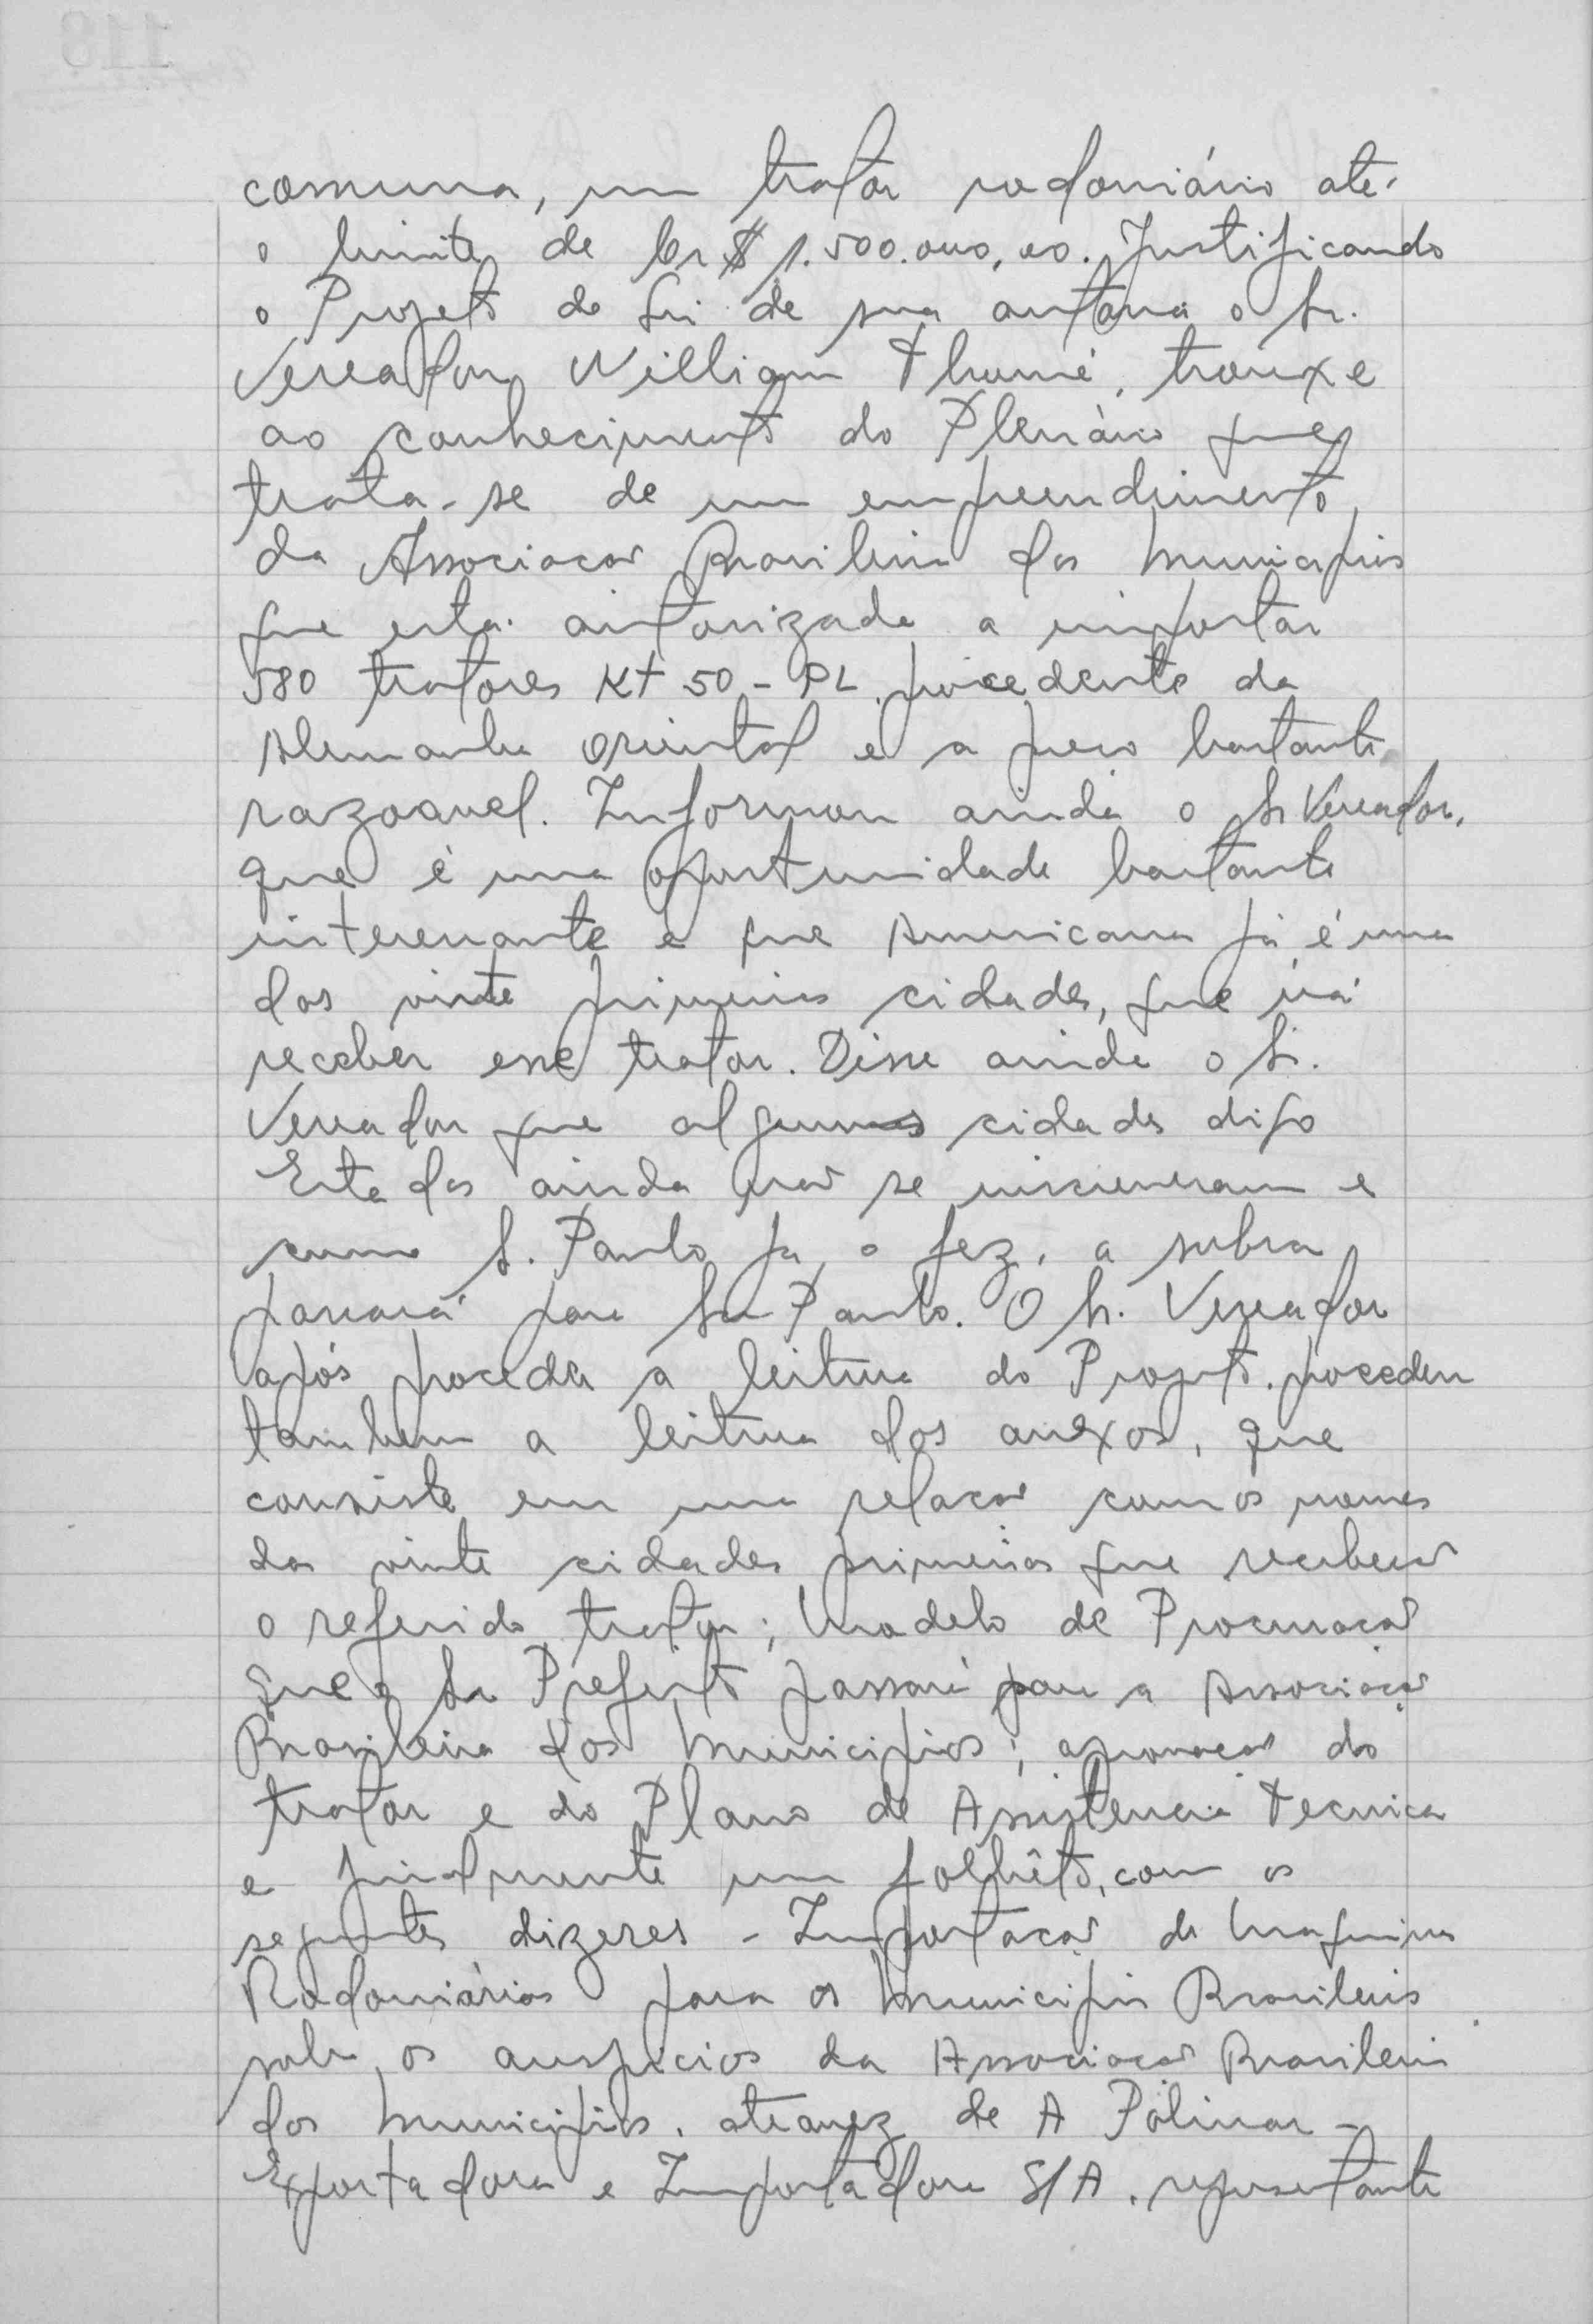 comuna, um trator rodoviário até
o limite de Cr$ 1.500.000,00. Justificando
o Projeto de Lei de sua autoria o Sr.
Vereador William Thomé, trouxe
ao conhecimento do Plenário que
trata-se de um empreendimento
da Associacao Brasileira dos Municipios
que está autorizada a importar
580 tratores KT 50 - PL, procedente da
Alemanha Oriental e a preco bastante
razoavel. Informou ainda o Sr Vereador,
que é uma oportunidade bastante
interessante e que Americana já é uma
das vinte primeiras cidades, que irá
receber esse trator. Disse ainda o Sr.
Vereador que algumas cidades digo
Estados ainda nao se inscreveram e
como S. Paulo ja o fez, a sobra
passará para Sao Paulo. O Sr. Vereador
após proceder a leitura do Projeto, procedeu
tambem a leitura dos anexos, que
consiste em uma relacao com os nomes
das vinte cidades primeiras que receberao
o referido trator; Modelo de Procuracao
que o Sr Prefeito passará para a Associacao
Brasileira dos Municipios; aprovacao do
trator e do Plano de Assistencia Tecnica
e finalmente um folhêto, com os
seguintes dizeres - Importacao de Maquinas
Rodoviárias para os Municipios Brasileiros
sobre os auspicios da Associacao Brasileira
dos Municipios, atravez de A Polimar -
Exportadora e Importadora S/A, representante